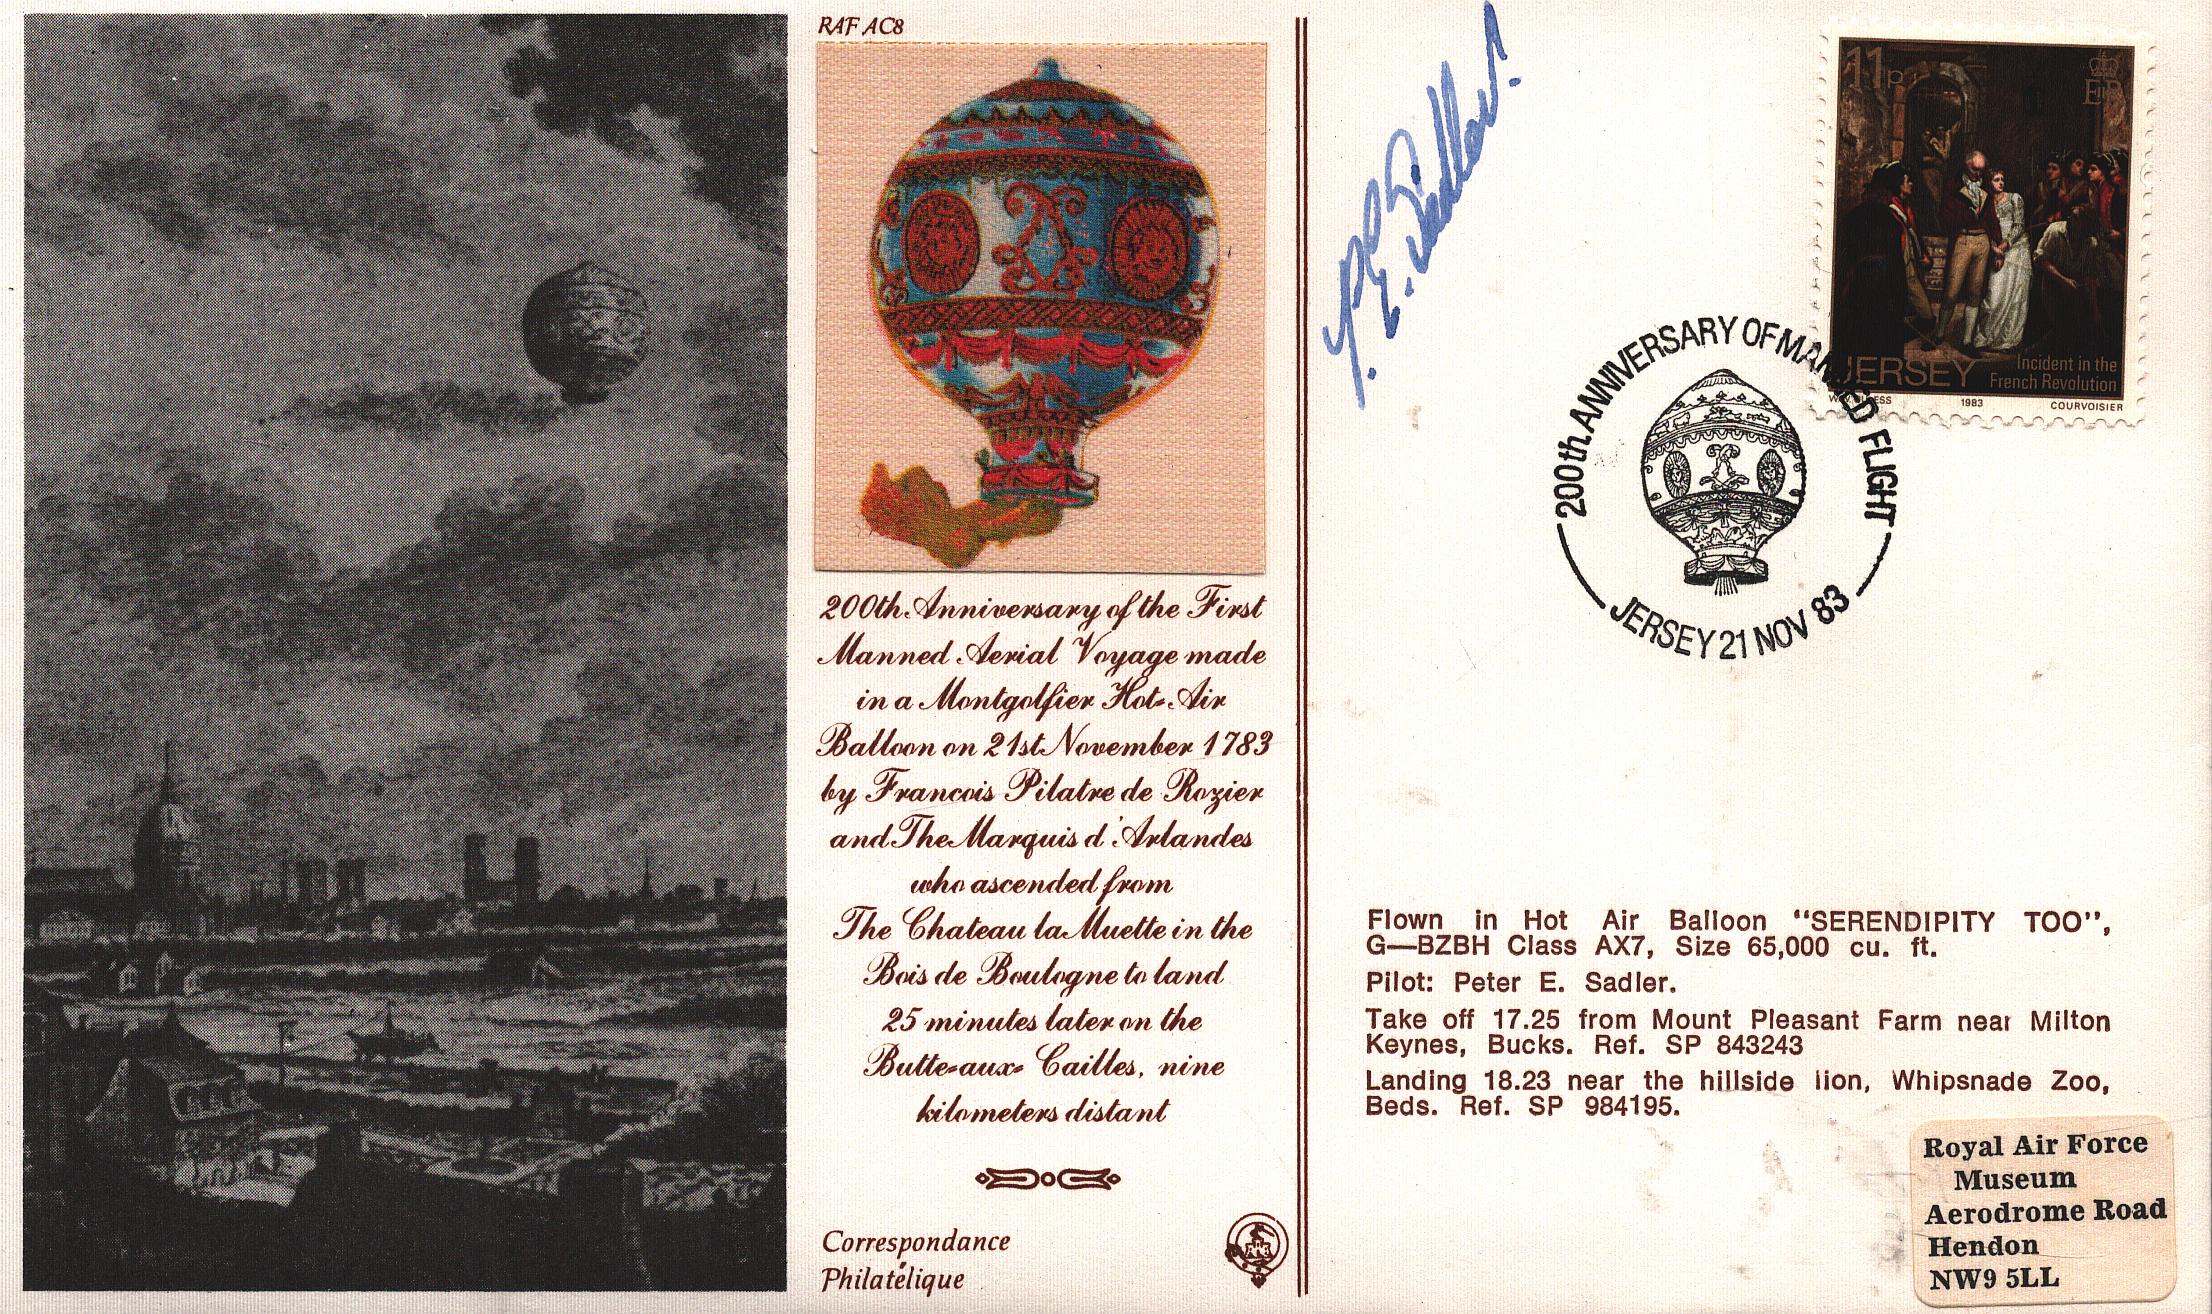 RAF AC8
200th Anniversary of the First
Manned Aerial Voyage made
in a Montgolfier Hot-Air
Balloon on 21st November 1783
by Francois Pilatre de Rozier
and The Marquis d'Arlandes
who ascended from
The Chateau la Muette in the
Bois de Boulogne to land
25 minutes later on the
Butte-aux-Cailles, nine
kilometers distant
Correspondance
Philatélique
P. E. Sadler.
11p
JERSEY
Incident in the
French Revolution
1983
COURVOISIER
200th ANNIVERSARY OF MANNED FLIGHT
JERSEY 21 NOV 83
Flown in Hot Air Balloon "SERENDIPITY TOO",
G—BZBH Class AX7, Size 65,000 cu. ft.
Pilot: Peter E. Sadler.
Take off 17.25 from Mount Pleasant Farm near Milton
Keynes, Bucks. Ref. SP 843243
Landing 18.23 near the hillside lion, Whipsnade Zoo,
Beds. Ref. SP 984195.
Royal Air Force
Museum
Aerodrome Road
Hendon
NW9 5LL